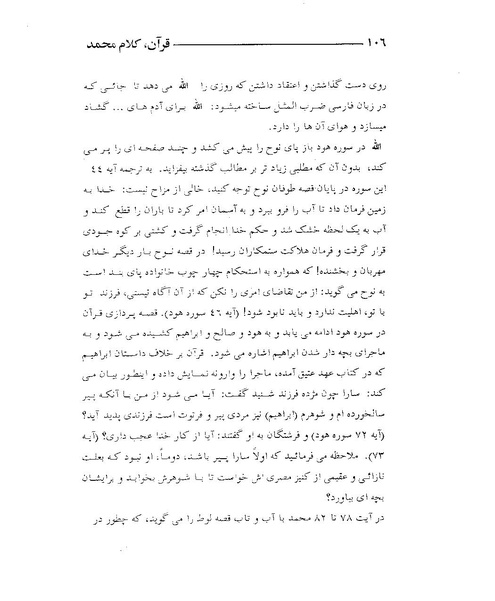 ۱۰۶ قرآن، کلام محمد
روی دست گذاشتن و اعتقاد داشتن که روزی را الله می دهد تا جائی که
در زبان فارسی ضرب المثل ساخته میشود: الله برای آدم های ... گشاد
میسازد و هوای آن ها را دارد.
الله در سوره هود باز پای نوح را پیش می کشد و چند صفحه ای را پر می
کند، بدون آن که مطلبی زیاد تر بر مطالب گذشته بیفزاید. به ترجمه آیه ۴۴
این سوره در پایان قصه طوفان نوح توجه کنید، خالی از مزاح نیست: خدا به
زمین فرمان داد تا آب را فرو ببرد و به آسمان امر کرد تا باران را قطع کند و
آب به یک لحظه خشک شد و حکم خدا انجام گرفت و کشتی بر کوه جودی
قرار گرفت و فرمان هلاکت ستمکاران رسید! در قصه نوح بار دیگر خدای
مهربان و بخشنده! که همواره به استحکام چهار چوب خانواده پای بند است
به نوح می گوید: از من تقاضای امری را نکن که از آن آگاه نیستی، فرزند تو
با تو، اهلیت ندارد و باید نابود شود! (آیه ۴۶ سوره هود). قصه پردازی قرآن
در سوره هود ادامه می یابد و به هود و صالح و ابراهیم کشیده می شود و به
ماجرای بچه دار شدن ابراهیم اشاره می شود. قرآن بر خلاف داستان ابراهیم
که در کتاب عهد عتیق آمده، ماجرا را وارونه نمایش داده و اینطور بیان می
کند: سارا چون مژده فرزند شنید گفت: آیا می شود از من با آنکه پیر
سالخورده ام و شوهرم (ابراهیم) نیز مردی پیر و فرتوت است فرزندی پدید آید؟
(آیه ۷۲ سوره هود) و فرشتگان به او گفتند: آیا از کار خدا عجب داری؟ (آیه
۷۳). ملاحظه می فرمائید که اولاً سارا پیر باشد، دوماً، او نبود که بعلت
نازائی و عقیمی از کنیز مصری اش خواست تا با شوهرش بخوابد و برایشان
بچه ای بیاورد؟
در آیت ۷۸ تا ۸۲ محمد با آب و تاب قصه لوط را می گوید، که چطور در